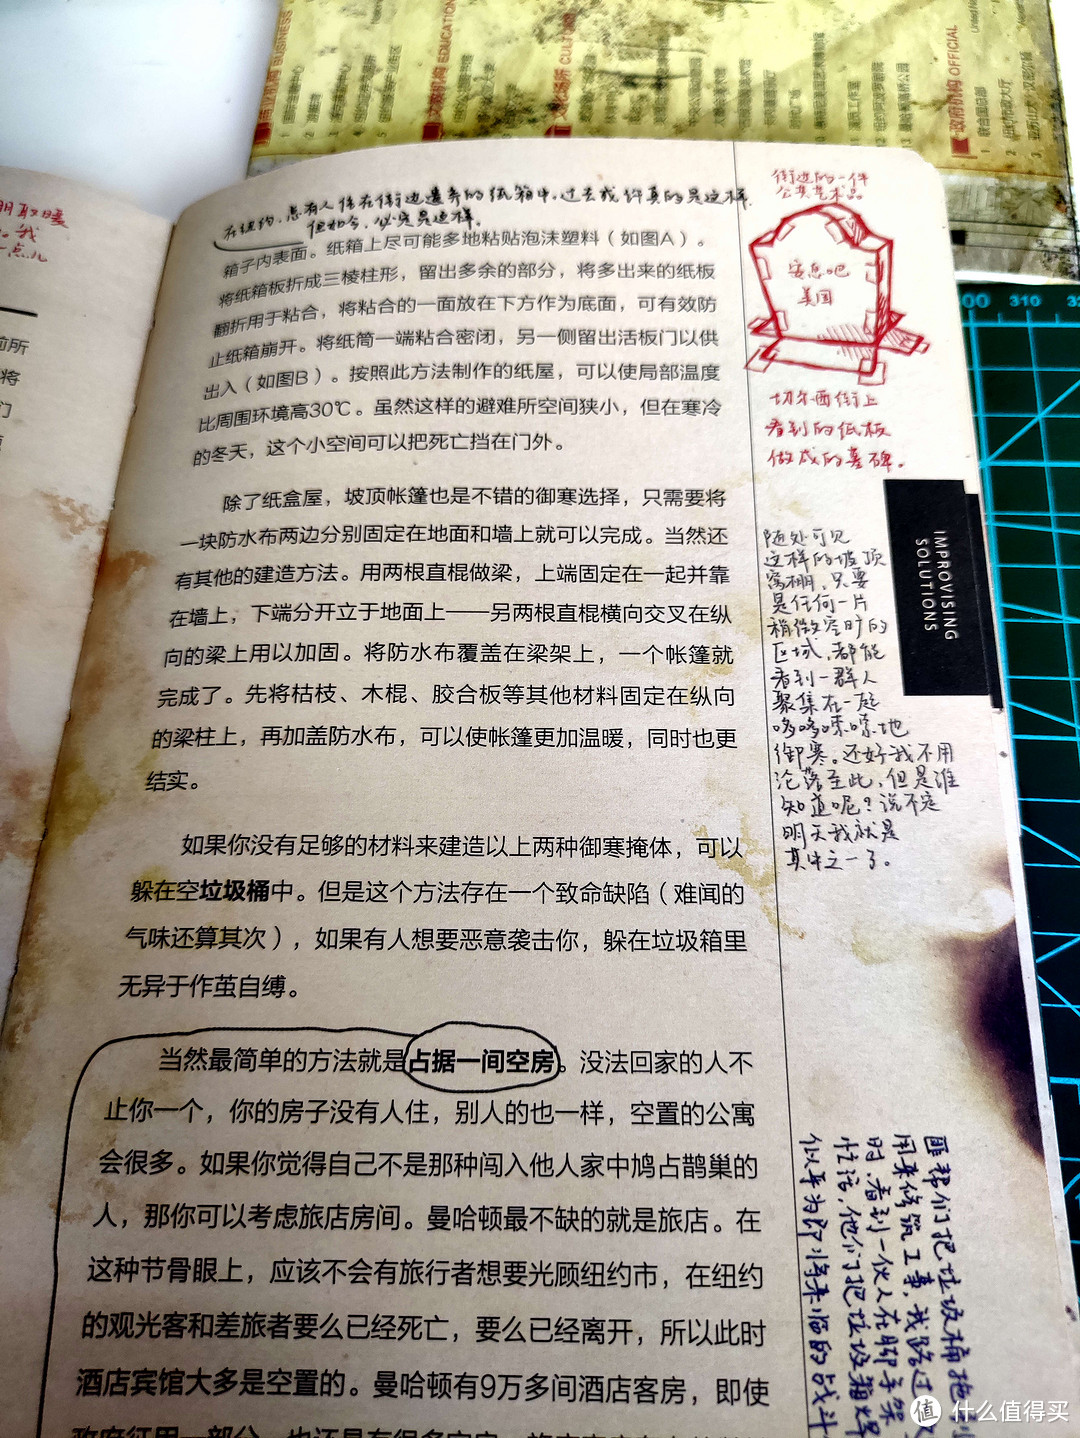 商业机构 BUSINESS
文教机构 EDUCATION
文化场所 CULTURE
政府机构 OFFICIAL
联合国总部
纽约市政大厅
明取暖
一点儿
前所
将
们
在纽约，总有人住在街边遗弃的纸箱中。过去或许真的是这样，
但如今，必定是这样。
箱子内表面。纸箱上尽可能多地粘贴泡沫塑料（如图A）。
将纸箱板折成三棱柱形，留出多余的部分，将多出来的纸板
翻折用于粘合，将粘合的一面放在下方作为底面，可有效防
止纸箱崩开。将纸筒一端粘合密闭，另一侧留出活板门以供
出入（如图B）。按照此方法制作的纸屋，可以使局部温度
比周围环境高30℃。虽然这样的避难所空间狭小，但在寒冷
的冬天，这个小空间可以把死亡挡在门外。
除了纸盒屋，坡顶帐篷也是不错的御寒选择，只需要将
一块防水布两边分别固定在地面和墙上就可以完成。当然还
有其他的建造方法。用两根直棍做梁，上端固定在一起并靠
在墙上，下端分开立于地面上——另两根直棍横向交叉在纵
向的梁上用以加固。将防水布覆盖在梁架上，一个帐篷就
完成了。先将枯枝、木棍、胶合板等其他材料固定在纵向
的梁柱上，再加盖防水布，可以使帐篷更加温暖，同时也更
结实。
如果你没有足够的材料来建造以上两种御寒掩体，可以
躲在空垃圾桶中。但是这个方法存在一个致命缺陷（难闻的
气味还算其次），如果有人想要恶意袭击你，躲在垃圾箱里
无异于作茧自缚。
当然最简单的方法就是占据一间空房。没法回家的人不
止你一个，你的房子没有人住，别人的也一样，空置的公寓
会很多。如果你觉得自己不是那种闯入他人家中鸠占鹊巢的
人，那你可以考虑旅店房间。曼哈顿最不缺的就是旅店。在
这种节骨眼上，应该不会有旅行者想要光顾纽约市，在纽约
的观光客和差旅者要么已经死亡，要么已经离开，所以此时
酒店宾馆大多是空置的。曼哈顿有9万多间酒店客房，即使
政府征用一部分，也还是有很多空房
街边的一件
公共艺术品
安息吧
美国
切尔西街上
看到的纸板
做成的墓碑。
随处可见
这样的坡顶
窝棚，只要
是任何一片
稍微空旷的
区域，都能
看到一群人
聚集在一起
哆哆嗦嗦地
御寒。还好我不用
沦落至此，但是谁
知道呢？说不定
明天我就是
其中之一了。
IMPROVISING
SOLUTIONS
匪帮们把垃圾桶拖
用来修筑工事，我路过
时，看到一伙人在脚手架
忙活，他们把垃圾箱焊
似乎为即将来临的战斗
300 310
值 什么值得买